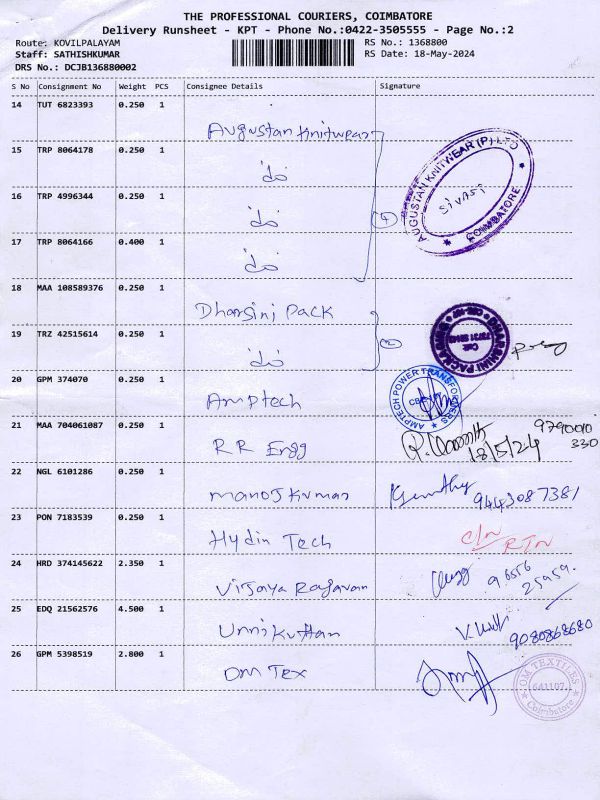 THE PROFESSIONAL COURIERS, COIMBATORE
Delivery Runsheet - KPT - Phone No.:0422-3505555 - Page No.:2
Route: KOVILPALAYAM RS No.: 1368800
Staff: SATHISHKUMAR RS Date: 18-May-2024
DRS No.: DCJB136880002
S No Consignment No Weight PCS Consignee Details Signature
14 TUT 6823393 0.250 1
Augustan Knitwear
15 TRP 8064178 0.250 1
do
16 TRP 4996344 0.250 1
do
17 TRP 8064166 0.400 1
do
4
AUGUSTAN KNITWEAR (P) LTD
SIVASI
COIMBATORE
18 MAA 108589376 0.250 1
Dharsini Pack
19 TRZ 42515614 0.250 1
do
2
20 GPM 374070 0.250 1
Amptech
AMPTECH POWER TRANSFORMERS
21 MAA 704061087 0.250 1
RR Engg
18/5/24
9790010
330
22 NGL 6101286 0.250 1
Manoj Kumar
9443087381
23 PON 7183539 0.250 1
Hydin Tech
C/N
RTN
24 HRD 374145622 2.350 1
Vijaya Ragavan
96556
25959
25 EDQ 21562576 4.500 1
Unnikuttan
9080868680
26 GPM 5398519 2.800 1
OM Tex
OM TEXTILES
641107
Coimbatore